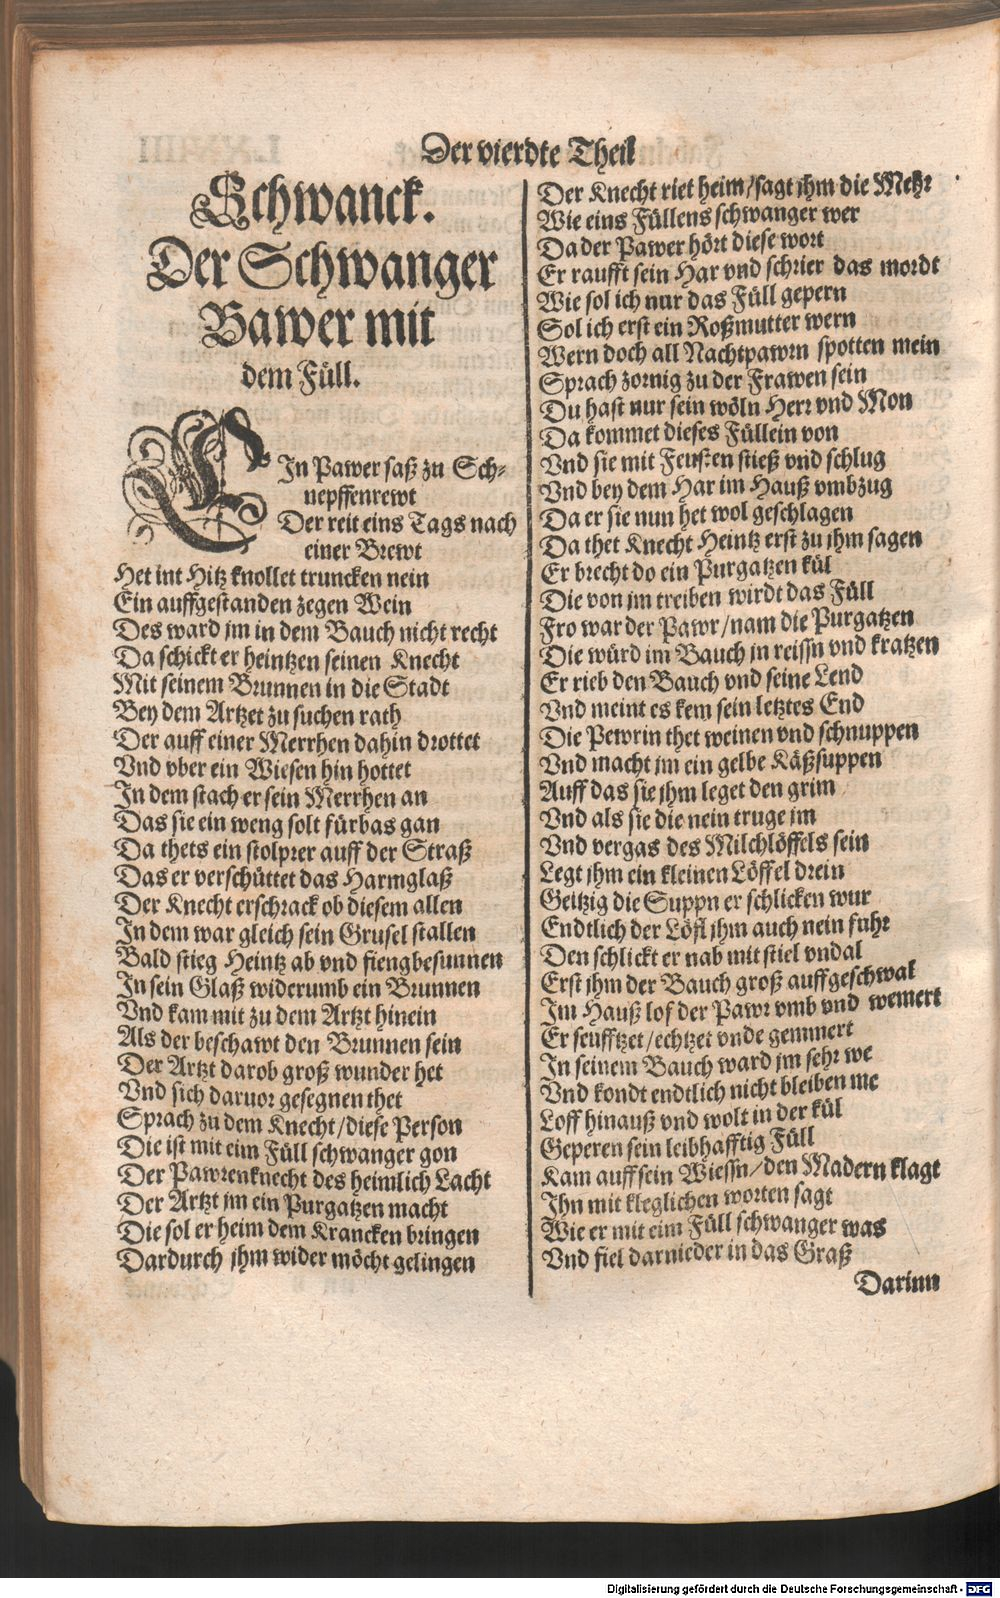 Der vierdte Theil
Schwanck.
Der Schwanger
Bawer mit
dem Füll.
EIn Pawer saß zu Sch-
nepffenrewt
Der reit eins Tags nach
einer Brewt
Het int Hitz knollet truncken nein
Ein auffgestanden zegen Wein
Des ward jm in dem Bauch nicht recht
Da schickt er heintzen seinen Knecht
Mit seinem Brunnen in die Stadt
Bey dem Artzet zu suchen rath
Der auff einer Merrhen dahin drottet
Vnd vber ein Wiesen hin hottet
In dem stach er sein Merrhen an
Das sie ein weng solt fürbas gan
Da thets ein stolprer auff der Straß
Das er verschüttet das Harmglaß
Der Knecht erschrack ob diesem allen
In dem war gleich sein Grusel stallen
Bald stieg Heintz ab vnd fieng besunnen
In sein Glaß widerumb ein Brunnen
Vnd kam mit zu dem Artzt hinein
Als der beschawt den Brunnen sein
Der Artzt darob groß wunder het
Vnd sich daruor gesegnen thet
Sprach zu dem Knecht/diese Person
Die ist mit eim Füll schwanger gon
Der Pawrenknecht des heimlich Lacht
Der Artzt jm ein Purgatzen macht
Die sol er heim dem Krancken bringen
Dardurch jhm wider möcht gelingen
Der Knecht riet heim/sagt jhm die Mehr
Wie eins Füllens schwanger wer
Da der Pawer hört diese wort
Er raufft sein Har vnd schrier das mordt
Wie sol ich nur das Füll gepern
Sol ich erst ein Roßmutter wern
Wern doch all Nachtpawrn spotten mein
Sprach zornig zu der Frawen sein
Du hast nur sein wöln Herr vnd Mon
Da kommet dieses Füllein von
Vnd sie mit Feusten stieß vnd schlug
Vnd bey dem Har im Hauß vmbzug
Da er sie nun het wol geschlagen
Da thet Knecht Heintz erst zu jhm sagen
Er brecht do ein Purgatzen kül
Die von jm treiben wirdt das Füll
Fro war der Pawr/nam die Purgatzen
Die würd im Bauch jn reissn vnd kratzen
Er rieb den Bauch vnd seine Lend
Vnd meint es kem sein letztes End
Die Pewrin thet weinen vnd schnuppen
Vnd macht jm ein gelbe Käßsuppen
Auff das sie jhm leget den grim
Vnd als sie die nein truge jm
Vnd vergas des Milchlöffels sein
Legt jhm ein kleinen Löffel drein
Geitzig die Suppn er schlicken wur
Endtlich der Löfl jhm auch nein fuhr
Den schlickt er nab mit stiel vnd al
Erst jhm der Bauch groß auffgeschwal
Im Hauß lof der Pawr vmb vnd wemert
Er seufftzet/echtzet vnde gemmert
In seinem Bauch ward jm sehr we
Vnd kondt endtlich nicht bleiben me
Loff hinauß vnd wolt in der kül
Geperen sein leibhafftig Füll
Kam auff sein Wiessn/den Madern klagt
Ihn mit kleglichen worten sagt
Wie er mit eim Füll schwanger was
Vnd fiel darnieder in das Graß
Darinn
Digitalisierung gefördert durch die Deutsche Forschungsgemeinschaft - DFG